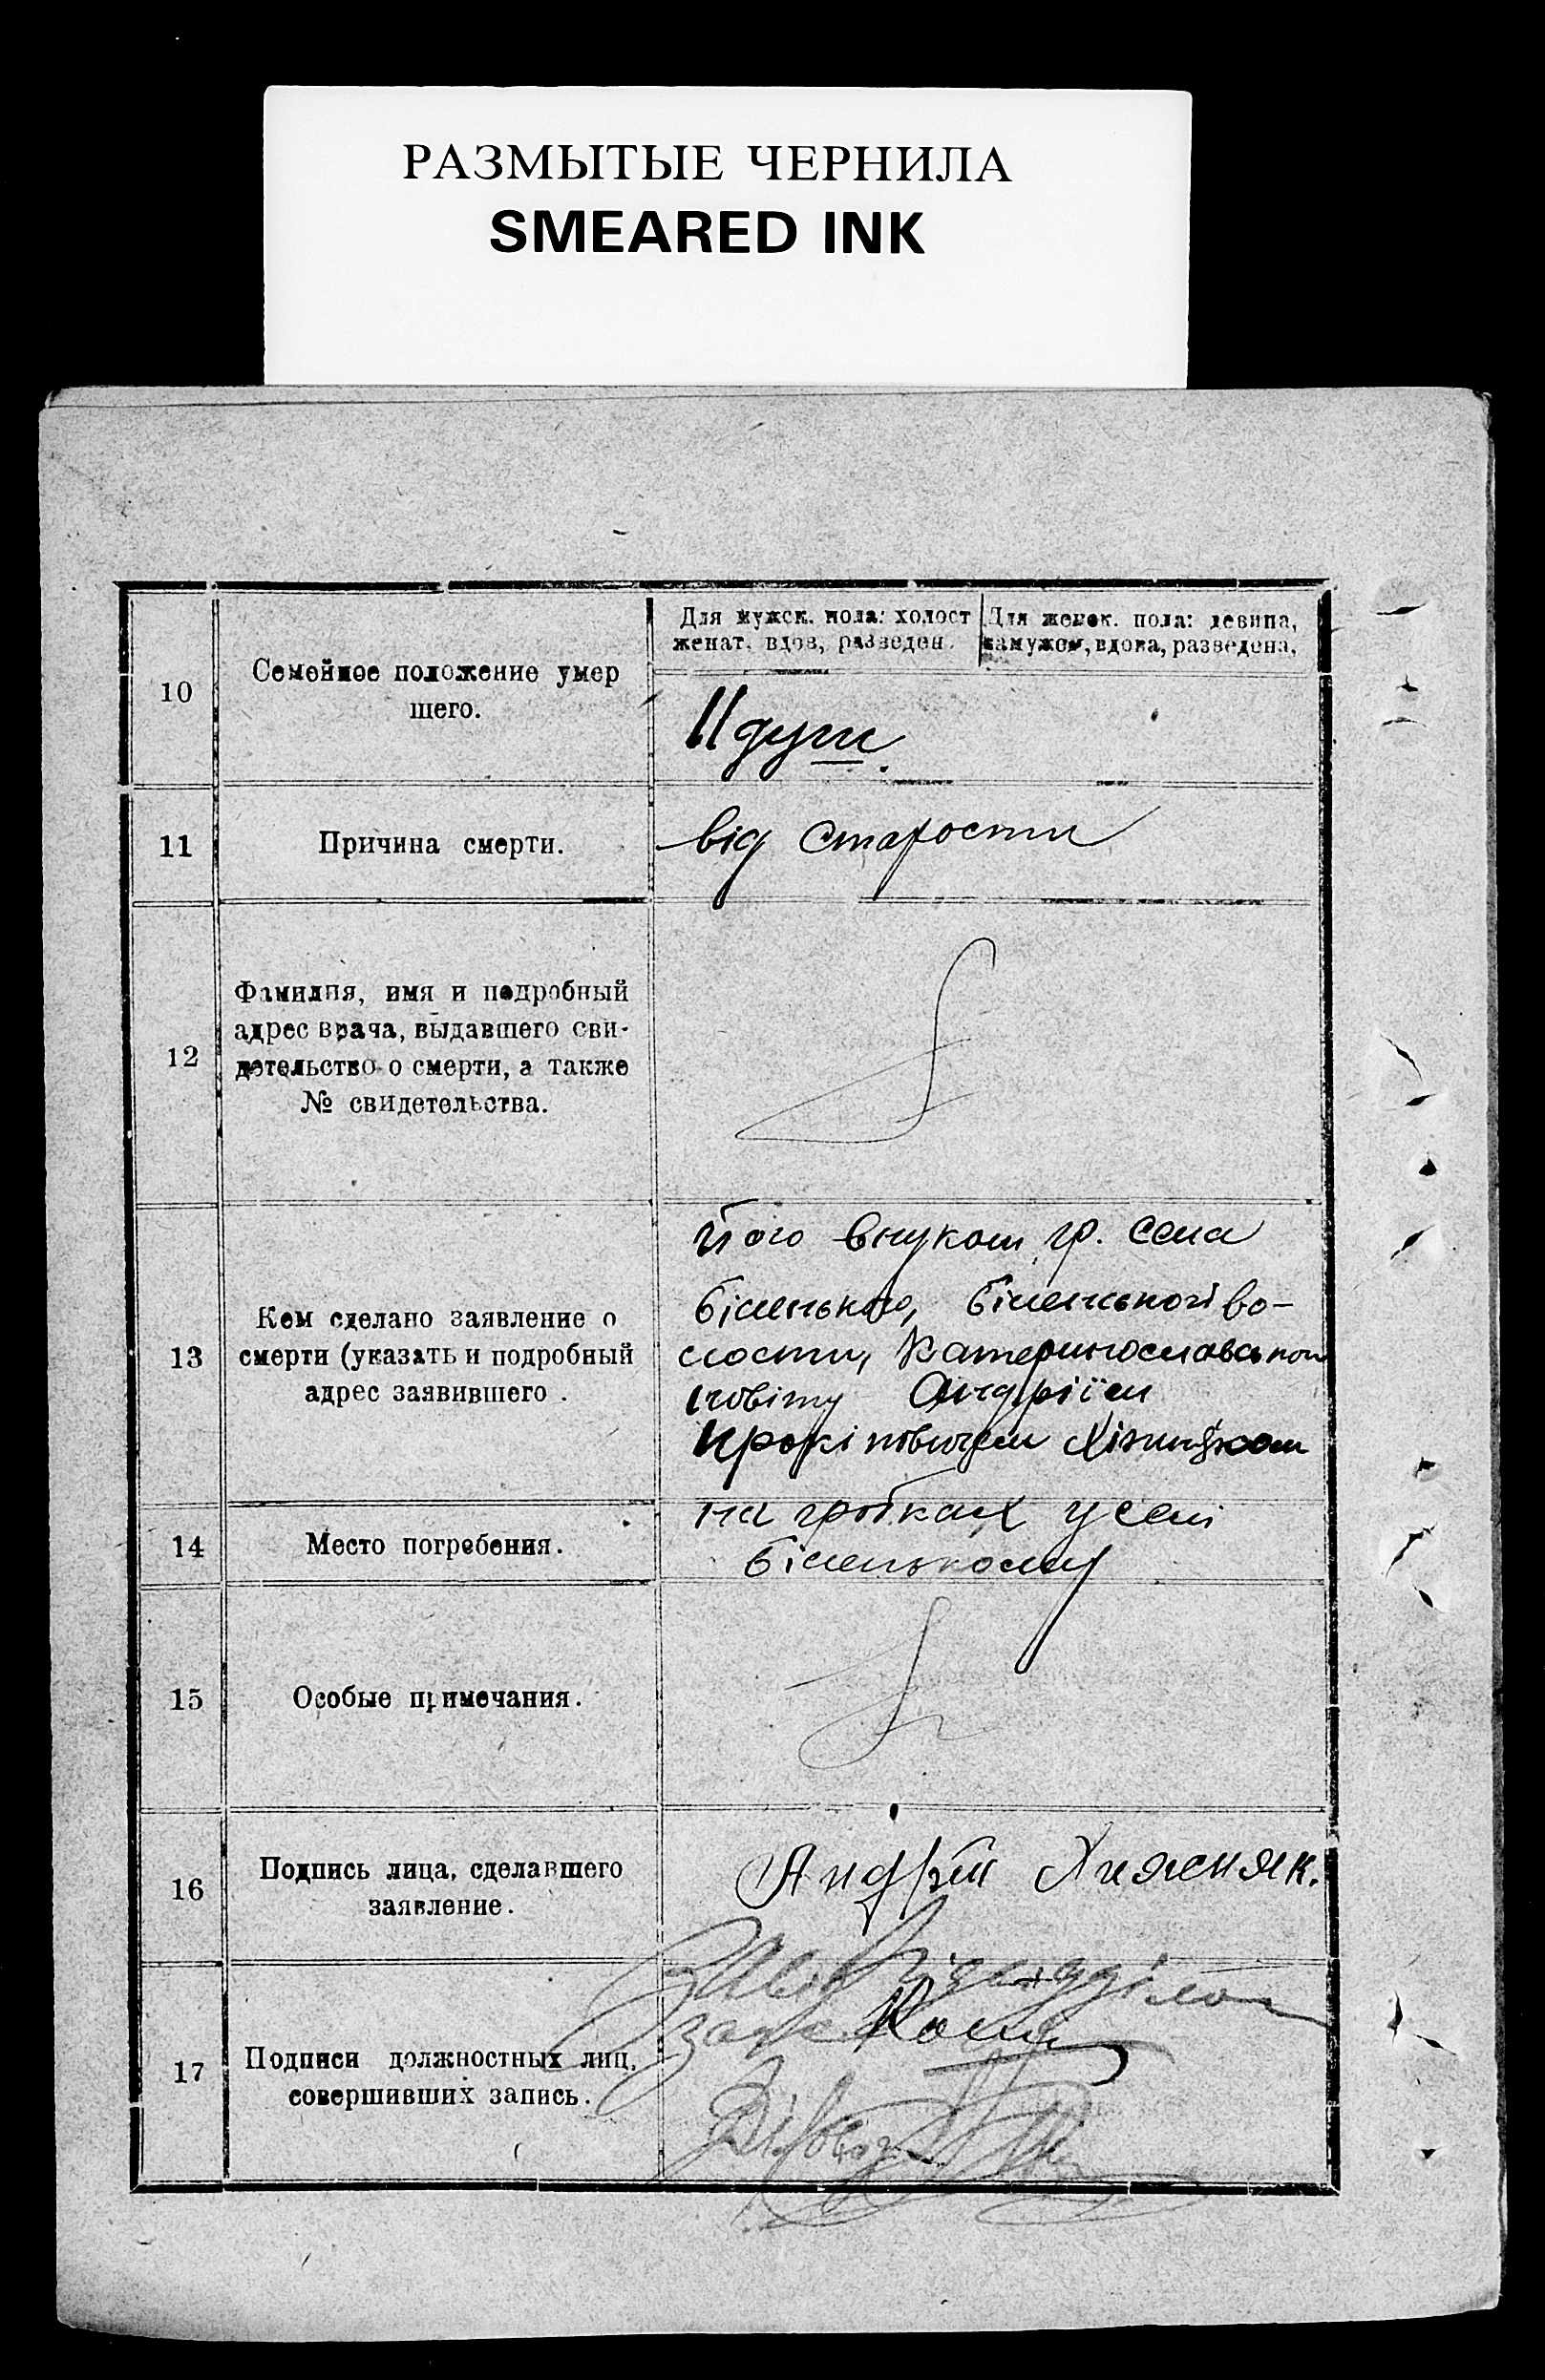 РАЗМЫТЫЕ ЧЕРНИЛА
SMEARED INK
Для мужск. пола: холост
женат, вдов, разведен.
Для женск. пола: девица,
замужем, вдова, разведена.
10
Семейное положение умер
шего.
11
Причина смерти.
від старости
12
Фамилия, имя и подробный
адрес врача, выдавшего сви-
детельство о смерти, а также
№ свидетельства.
13
Кем сделано заявление о
смерти (указать и подробный
адрес заявившего .
його внуком гр. села
Біленького, Біленької во-
лости, Катеринославського
повіту Андріїем
14
Место погребения.
на гробках у селі
Біленькому
15
Особые примечания.
16
Подпись лица, сделавшего
заявление.
Андрій
17
Подписи должностных лиц,
совершивших запись.